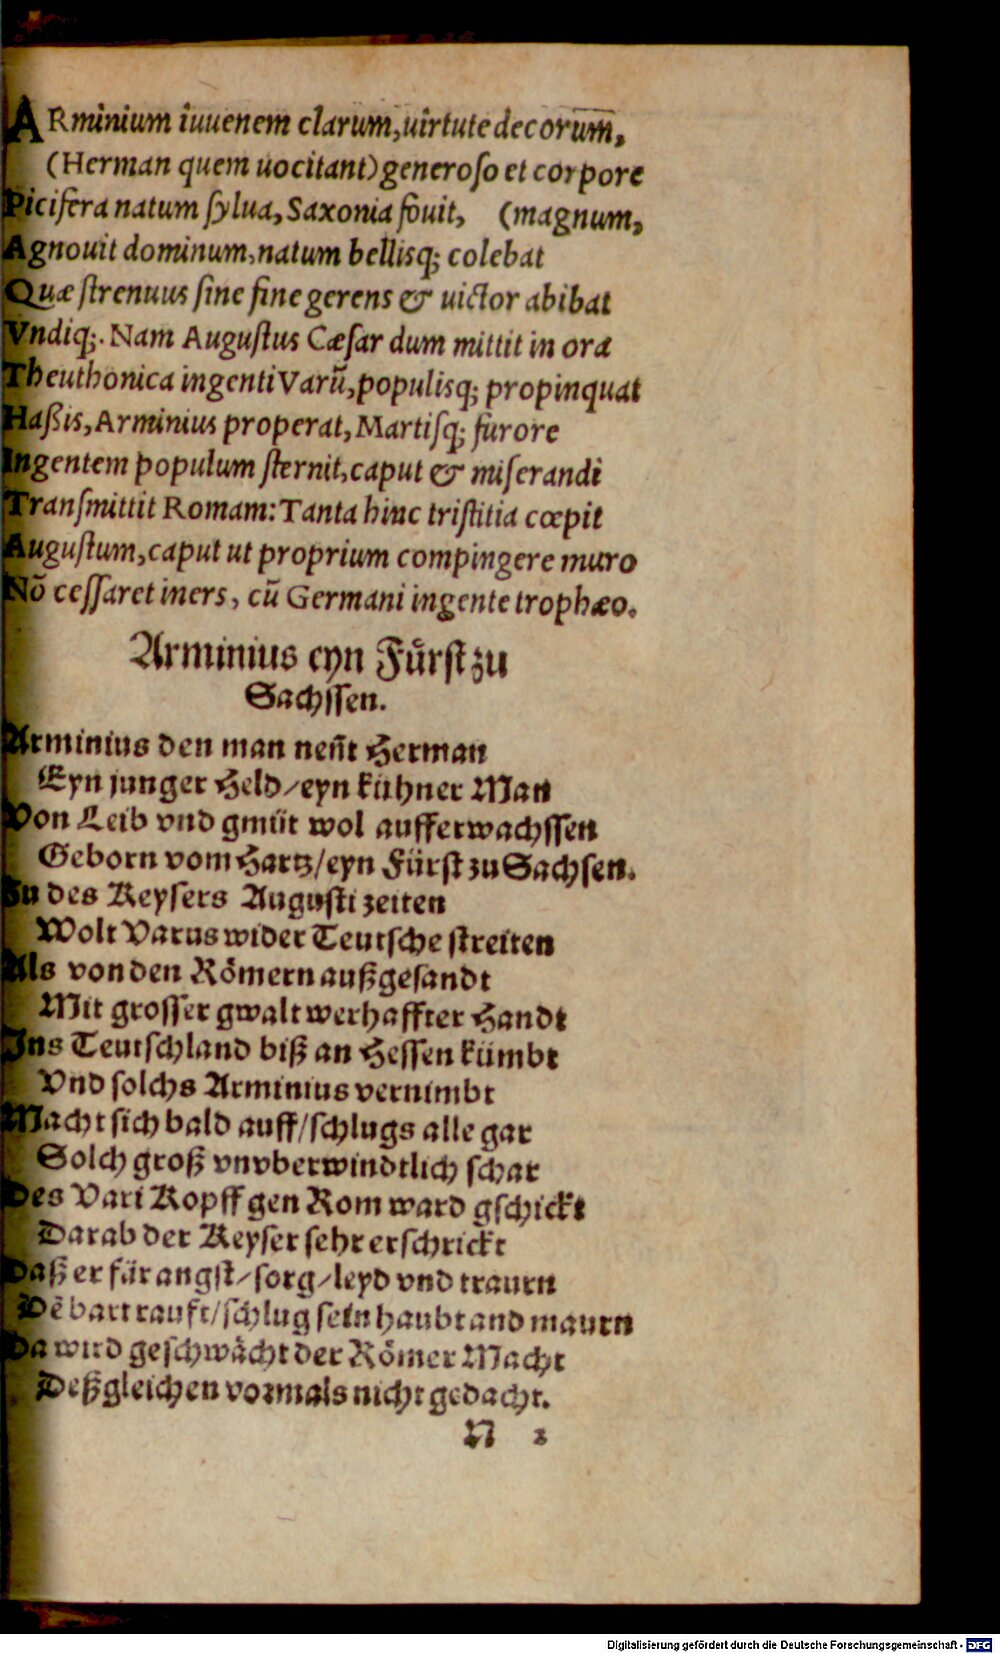 ARminium iuuenem clarum, uirtute decorum,
(Herman quem uocitant) generoſo et corpore
Picifera natum ſylua, Saxonia fouit, (magnum,
Agnouit dominum, natum bellisq; colebat
Quæ ſtrenuus ſine fine gerens & uictor abibat
Vndiq;. Nam Auguſtus Cæſar dum mittit in ora
Theuthonica ingenti Varũ, populisq; propinquat
Haßis, Arminius properat, Martiſq; furore
Ingentem populum ſternit, caput & miſerandi
Tranſmittit Romam: Tanta hinc triſtitia cœpit
Auguſtum, caput ut proprium compingere muro
Nõ ceſſaret iners, cũ Germani ingente trophæo.
Arminius eyn Fuͤrſt zu
Sachſſen.
Arminius den man neñt Herman
Eyn junger Held/eyn kuͤhner Man
Von Leib vnd gmuͤt wol aufferwachſſen
Geborn vom Hartz/eyn Fuͤrſt zu Sachſen.
Zu des Keyſers Auguſti zeiten
Wolt Varus wider Teutſche ſtreiten
Als von den Roͤmern außgeſandt
Mit groſſer gwalt werhaffter Handt
Ins Teutſchland biß an Heſſen kuͤmbt
Vnd ſolchs Arminius vernimbt
Macht ſich bald auff/ſchlugs alle gar
Solch groß vnvberwindtlich ſchar
Des Vari Kopff gen Rom ward gſchickt
Darab der Keyſer ſehr erſchrickt
Daß er fuͤr angſt/ſorg/leyd vnd traurn
Dẽ bart rauft/ſchlug ſein haubt and maurn
Da wird geſchwaͤcht der Roͤmer Macht
Deßgleichen vormals nicht gedacht.
N 2
Digitalisierung gefördert durch die Deutsche Forschungsgemeinschaft - DFG